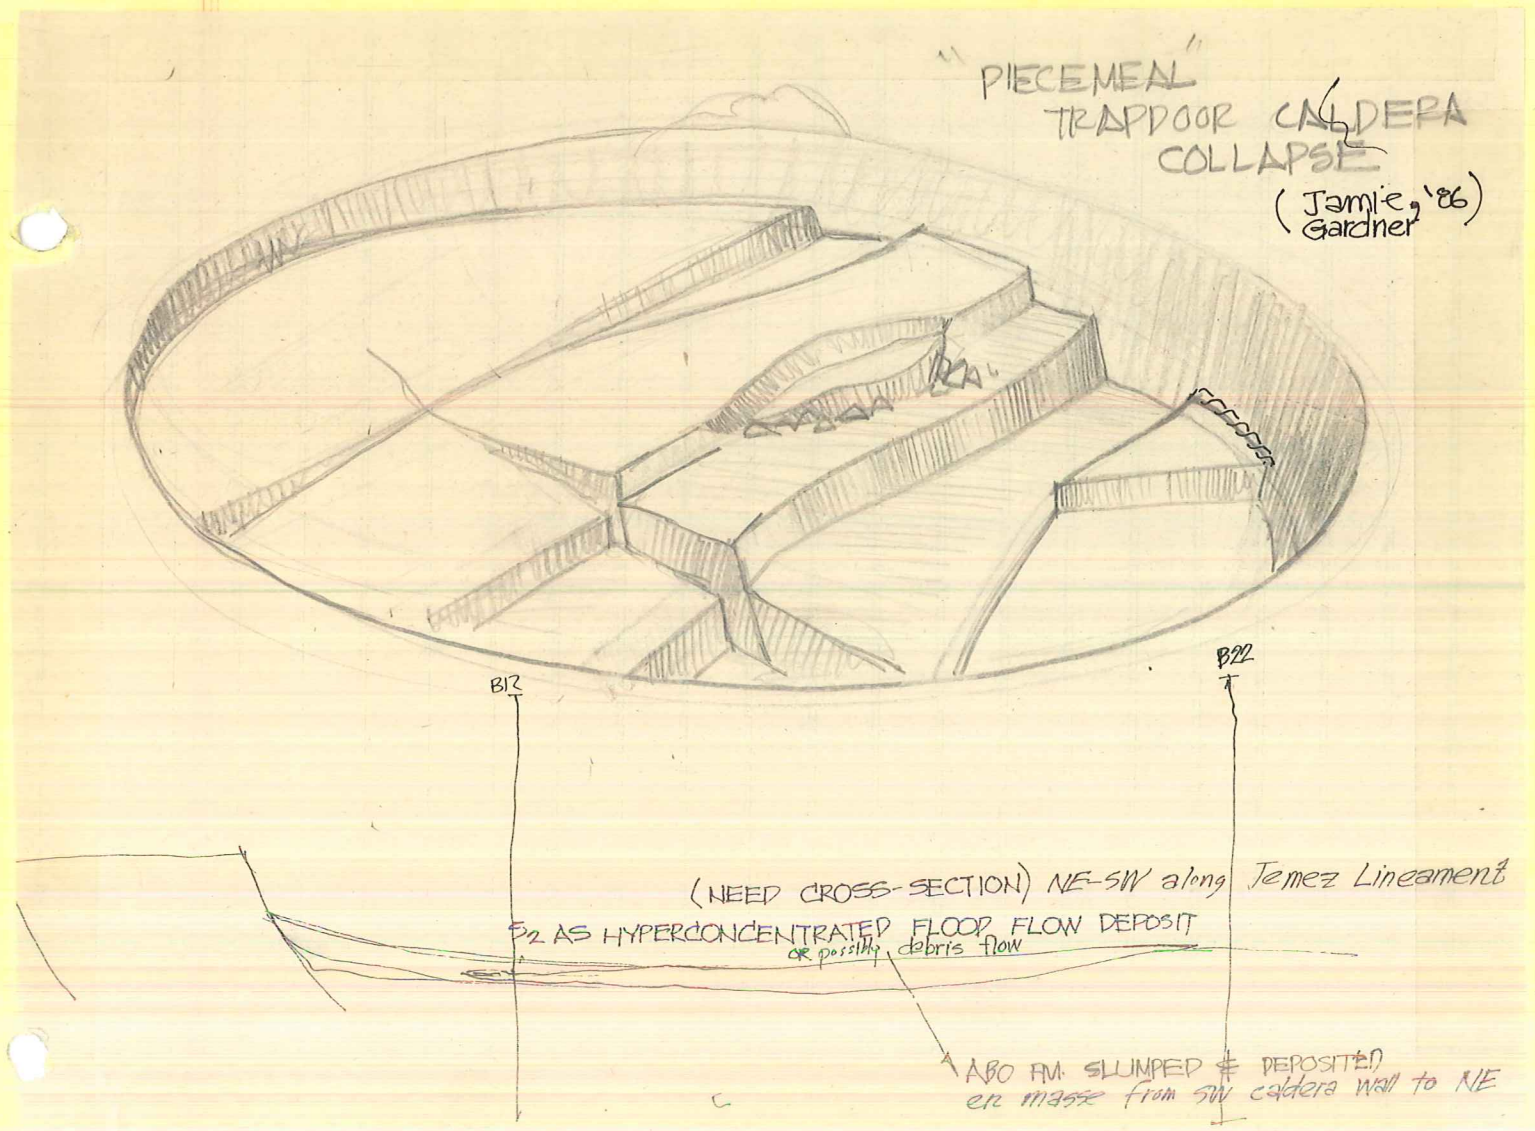 "PIECEMEAL"
TRAPDOOR CALDERA
COLLAPSE
(Jamie, '86)
Gardner
B12
B22
(NEED CROSS-SECTION) NE-SW along Jemez Lineament
S2 AS HYPERCONCENTRATED FLOOD FLOW DEPOSIT
OR possibly debris flow
ABO FM. SLUMPED & DEPOSITED
en masse from SW caldera wall to NE